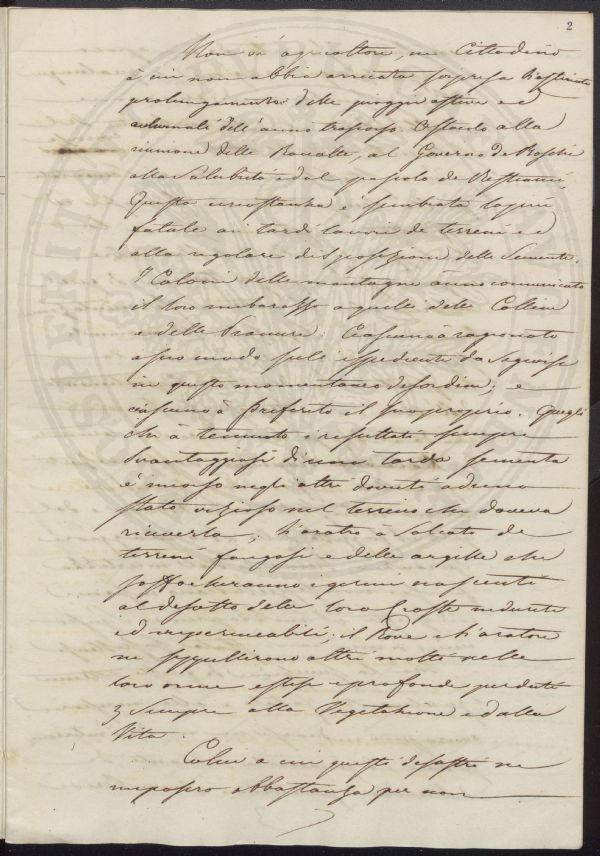 2
Non vi è agricoltore, ne Cittadino
à cui non abbia arrecata sorpresa l'ostinato
prolungamento delle pioggie estive ed
autunnali dell'anno trasporso. Ostacolo alla
riunione delle Raccolte, al Governo de Boschi
alla Salubrità ed al pascolo de Bestiami,
Questa circostanza è sembrata eziandio
fatale ai tardi lavori de terreni ed
alla regolare disposizione delle Semente.
I Coloni delle montagne ànno comunicato
il loro imbarazzo a quelli delle Colline
e delle Pianure: Ciascuno à ragionato
a suo modo sulli espedienti da Seguirsi
in questo momentaneo disordine; e
ciascuno à preferito il suo proprio. Quegli
che à temuto i resultati sempre
Svantaggiosi di una tarda sementa
è incorso negli altri dovuti ad uno
stato vizioso nel terreno che doveva
riceverla; L'aratro à Solcato de
terreni fangosi e delle argille che
soffocheranno i germi nascenti
al disotto delle loro Croste indurite
ed impermeabili; il Bove e l'aratore
ne seppellirono altri molti nelle
loro orme estese e profonde perduti
p Sempre alla Vegetazione e dalla
Vita.
Colui a cui questi disastri ne
imposero abbastanza per non